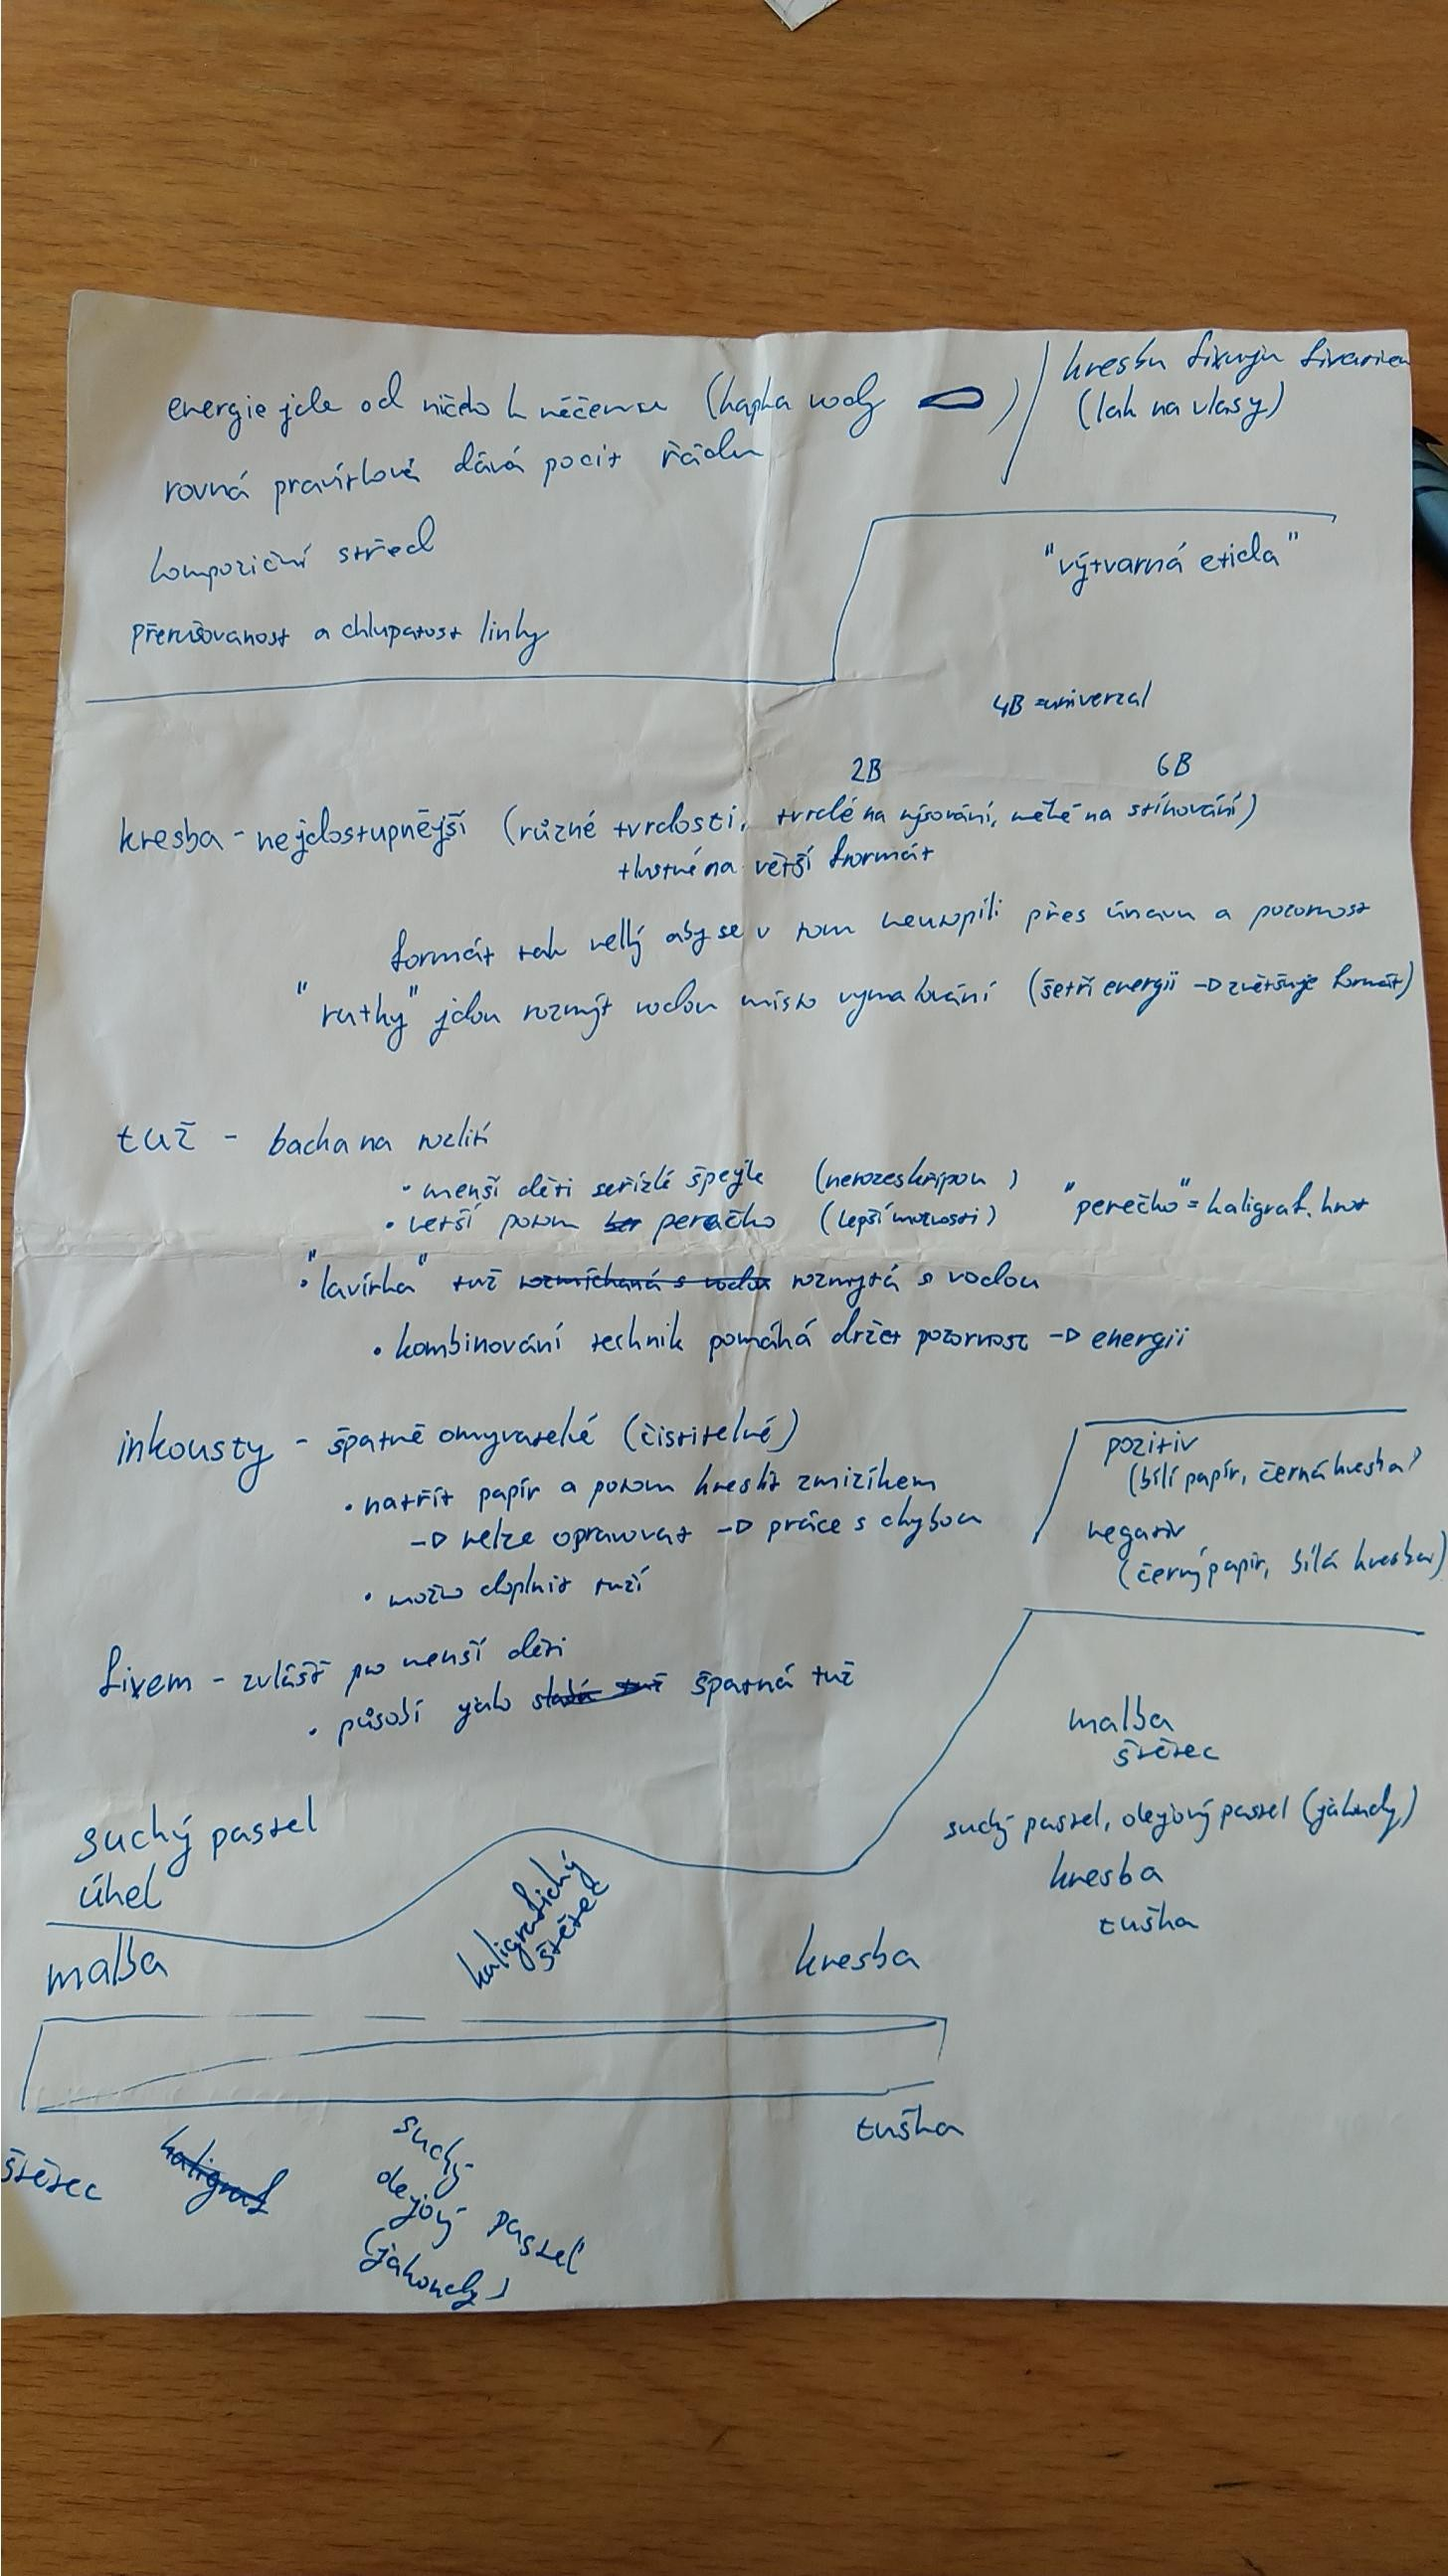 energie jde od ničeho k něčemu (kapka vody )
rovná pravítková dává pocit řádu
kompoziční střed
přerušovanost a chlupatost linky
kresbu fixuju fixativem
(lak na vlasy)
"výtvarná etida"
4B = univerzal
2B 6B
kresba - nejdostupnější (různé tvrdosti, tvrdé na rýsování, měké na stínování)
tlustné na větší formát
formát tak velký aby se v tom neutopili přes únavu a pozornost
"rutky" jdou rozmýt vodou místo vymalování (šetří energii → zvětšuje formát)
tuž - bacha na rozlití
• menší děti seřízlé špejle (nerozeskřípou)
• vetší potom perečko (lepší možnosti) "perečko" = kaligraf. hrot
• "lavírka" tuž rozmíchaná s vodou rozmytá s vodou
• kombinování technik pomáhá držet pozornost → energii
inkousty - špatně omyvatelké (čistitelné)
• natřít papír a potom kreslit zmizíkem
→ nelze opravovat → práce s chybou
• možno doplnit tuží
pozitiv
(bílí papír, černá kresba)
negativ
(černý papír, bílá kresba)
fixem - zvlášť pro menší děti
• působí jako slabá tuž špatná tuž
malba
štětec
suchý pastel, olejový pastel (jakoudy)
kresba
tužka
suchý pastel
úhel
malba
kaligrafický
štětec
kresba
štětec
kaligraf
suchý
olejový pastel
(jakoudy)
tužka